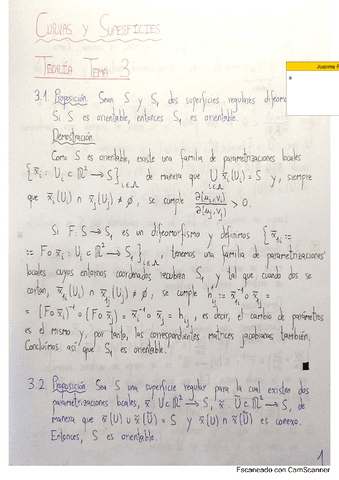 CURVAS Y SUPERFICIES
TEORÍA TEMA 3
Juanma
3.1 Proposición. Sean S y S₁ dos superficies regulares difeomo
Si S es orientable, entonces S₁ es orientable.
Demostración
Como S es orientable, existe una familia de parametrizaciones locales
{x̄ᵢ : Uᵢ ⊂ ℝ² → S}ᵢ∈Λ, de manera que ⋃ᵢ∈Λ x̄ᵢ(Uᵢ) = S y, siempre
que x̄ᵢ(Uᵢ) ∩ x̄ⱼ(Uⱼ) ≠ ∅, se cumple ∂(uᵢ,vᵢ)/∂(uⱼ,vⱼ) > 0.
Si F: S → S₁ es un difeomorfismo y definimos {x̄₁ᵢ :=
:= F∘x̄ᵢ : Uᵢ ⊂ ℝ² → S₁}ᵢ∈Λ, tenemos una familia de parametrizaciones
locales cuyos entornos coordenados recubren S₁ y tal que cuando dos se
cortan, x̄₁ᵢ(Uᵢ) ∩ x̄₁ⱼ(Uⱼ) ≠ ∅, se cumple h¹ᵢⱼ := x̄₁ᵢ⁻¹ ∘ x̄₁ⱼ =
= (F∘x̄ᵢ)⁻¹ ∘ (F∘x̄ⱼ) = x̄ᵢ⁻¹ ∘ x̄ⱼ = hᵢⱼ, es decir, el cambio de parámetros
es el mismo y, por tanto, las correspondientes matrices jacobianas también.
Concluimos así que S₁ es orientable.
3.2 Proposición Sea S una superficie regular para la cual existen dos
parametrizaciones locales, x̄: U ⊂ ℝ² → S, x̃: Ũ ⊂ ℝ² → S, de
manera que x̄(U) ∪ x̃(Ũ) = S y x̄(U) ∩ x̃(Ũ) es conexo.
Entonces, S es orientable.
1
Escaneado con CamScanner